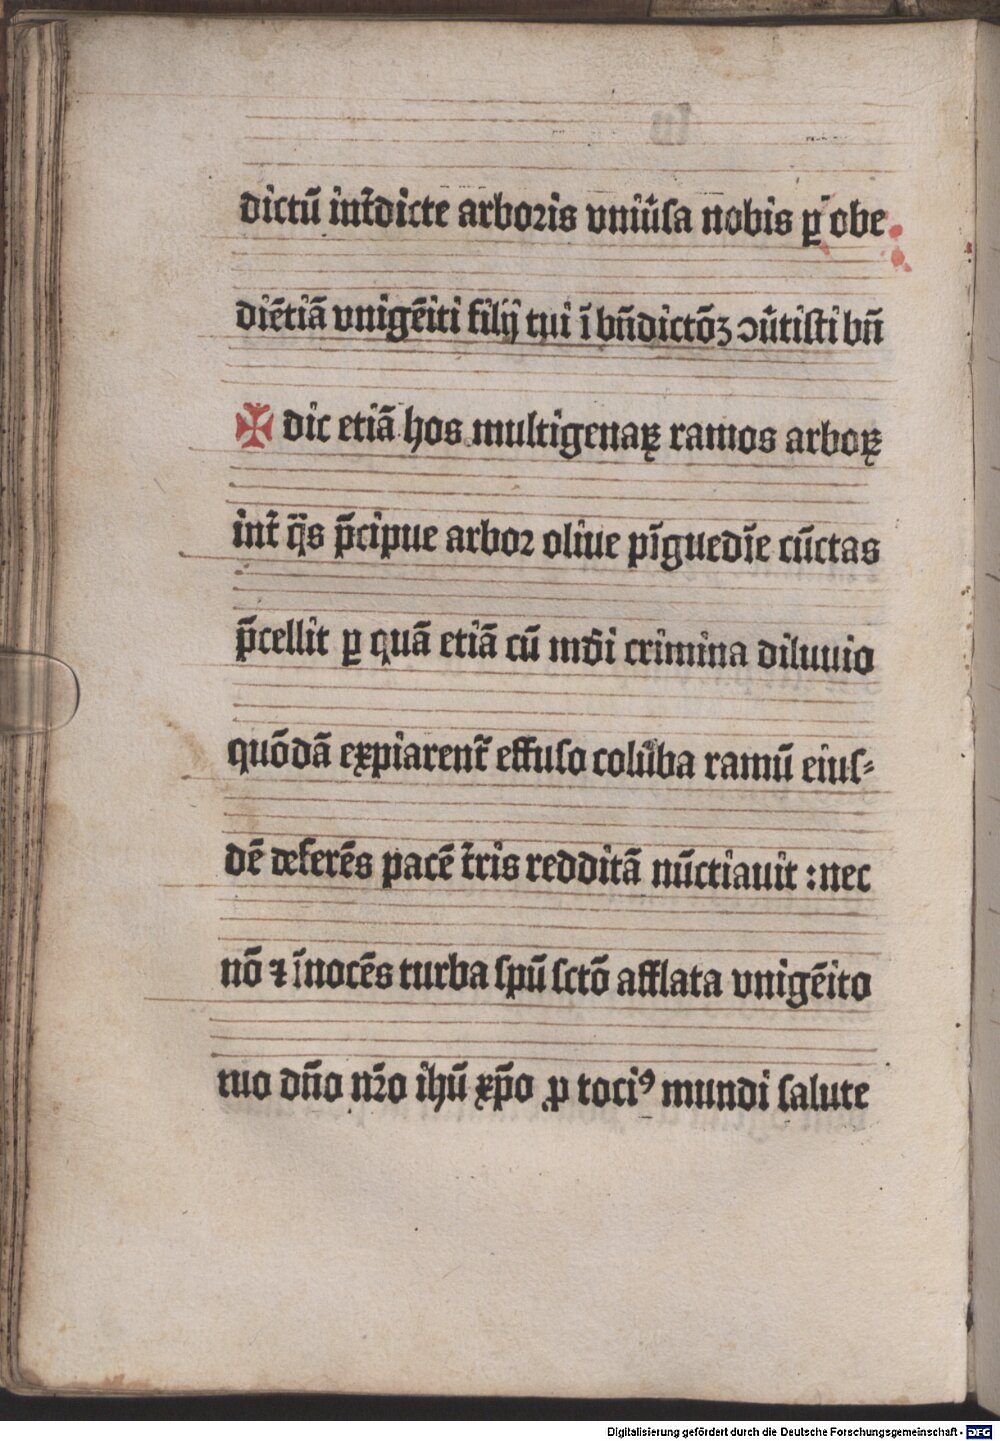 dictū int̄dicte arboꝛis vniūſa nobis ꝑ obe
diētiā vnigēiti filij tui ī bn̄dictōꝫ ↄūtiſti bn̄
✠ dic etiā hos multigenaꝝ ramos arboꝝ
int̄ q̄s p̄cipue arboꝛ oliue pīguedīe cūctas
p̄cellit ꝑ quā etiā cū mdi crimina diluuio
quōdā expiarent̄ effuſo colūba ramū eiuſ⸗
dē deferēs pacē t̄ris redditā nūctiauit : nec
nō ⁊ īnocēs turba ſpū ſctō afflata vnigēito
tuo dn̄o nr̄o ihū xp̄o ꝓ tociꝰ mundi ſalute
Digitalisierung gefördert durch die Deutsche Forschungsgemeinschaft - DFG